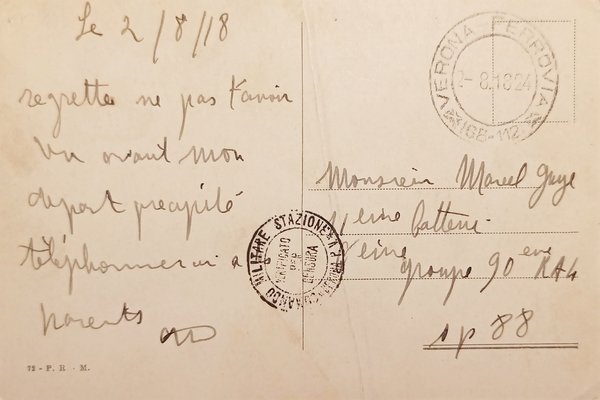 Le 2/8/18
regrette ne pas t'avoir
vu avant mon
depart precipité
téléphonerai a
parents
72 - P. R. - M.
VERONA FERROVIA
2-8.18 24
(168-112)
Monsieur Marcel Gaye
1ere batterie
2eme groupe 90eme RA
sp 88
COMANDO MILITARE STAZIONE
VERIFICATO
PER
CENSURA